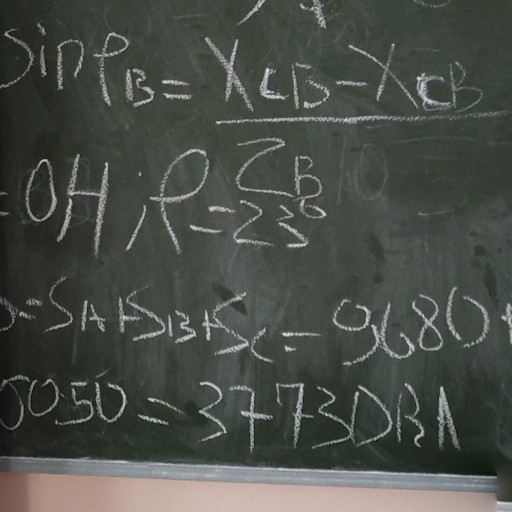 sinφB = XLB - XCB
ZB
= OH; φ = 23°
= SA + SB + SC = 9680 +
0050 = 3773 DBA